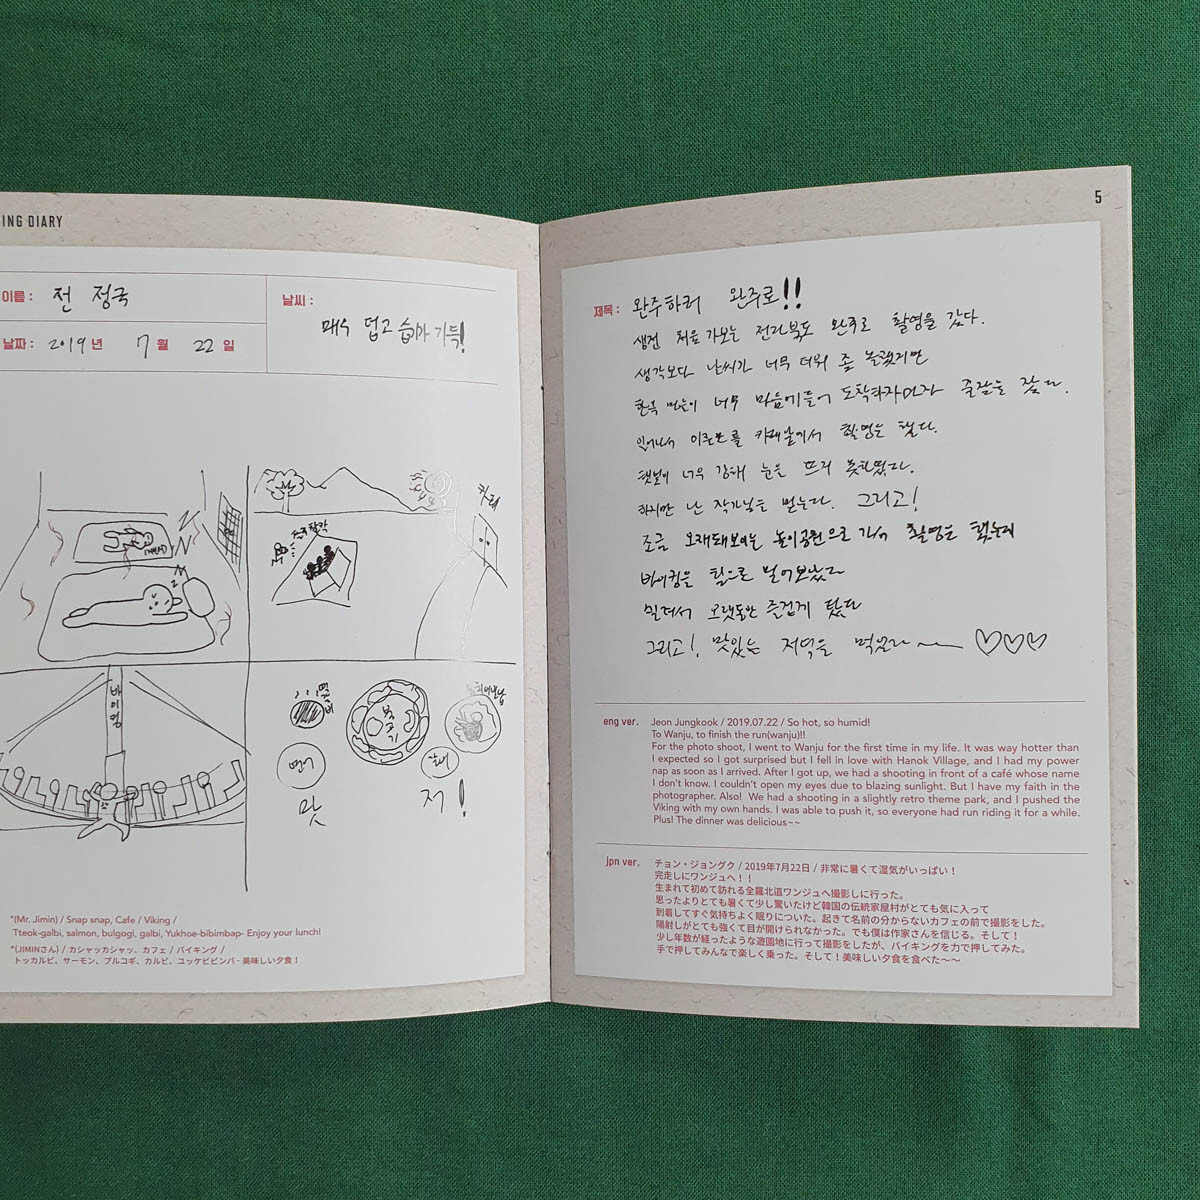 ING DIARY
이름 : 전 정국
날씨 :
매우 덥고 습기가 가득!
날짜 : 2019 년 7 월 22 일
찰칵
카페
바이킹
떡갈비
불고기
육회비빔밥
연어
갈비
맛 저!
*(Mr. Jimin) / Snap snap, Cafe / Viking /
Tteok-galbi, salmon, bulgogi, galbi, Yukhoe-bibimbap- Enjoy your lunch!
*(JIMINさん) / カシャッカシャッ、カフェ / バイキング /
トッカルビ、サーモン、プルコギ、カルビ、ユッケビビンバ - 美味しい夕食！
5
제목 : 완주하러 완주로!!
생전 처음 가보는 전라북도 완주로 촬영을 갔다.
생각보다 날씨가 너무 더워 좀 놀랬지만
한옥 마을이 너무 마음에들어 도착하자마자 꿀잠을 잤다.
일어나서 이름모를 카페앞에서 촬영을 했다.
햇빛이 너무 강해 눈을 뜨지 못하였다.
하지만 난 작가님을 믿는다. 그리고!
조금 오래돼보이는 놀이공원으로 가서 촬영을 했는데
바이킹을 힘으로 밀어보았다
밀려서 오랫동안 즐겁게 탔다
그리고! 맛있는 저녁을 먹었다~ ♡♡♡
eng ver. Jeon Jungkook / 2019.07.22 / So hot, so humid!
To Wanju, to finish the run(wanju)!!
For the photo shoot, I went to Wanju for the first time in my life. It was way hotter than
I expected so I got surprised but I fell in love with Hanok Village, and I had my power
nap as soon as I arrived. After I got up, we had a shooting in front of a café whose name
I don't know. I couldn't open my eyes due to blazing sunlight. But I have my faith in the
photographer. Also! We had a shooting in a slightly retro theme park, and I pushed the
Viking with my own hands. I was able to push it, so everyone had run riding it for a while.
Plus! The dinner was delicious~~
jpn ver. チョン・ジョングク / 2019年7月22日 / 非常に暑くて湿気がいっぱい！
完走しにワンジュへ！！
生まれて初めて訪れる全羅北道ワンジュへ撮影しに行った。
思ったよりとても暑くて少し驚いたけど韓国の伝統家屋村がとても気に入って
到着してすぐ気持ちよく眠りについた。起きて名前の分からないカフェの前で撮影をした。
陽射しがとても強くて目が開けられなかった。でも僕は作家さんを信じる。そして！
少し年数が経ったような遊園地に行って撮影をしたが、バイキングを力で押してみた。
手で押してみんなで楽しく乗った。そして！美味しい夕食を食べた〜〜